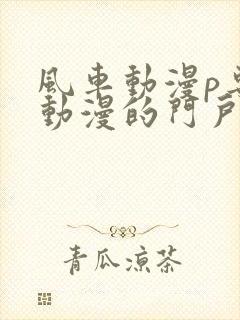 風車動漫p
動漫的門戶
青瓜涼茶